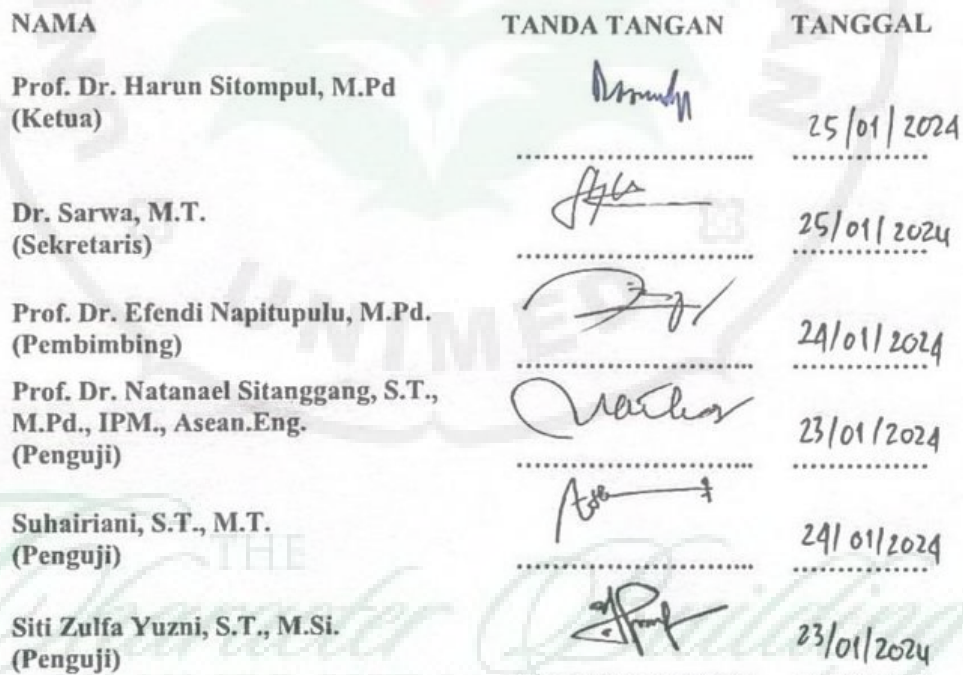 NAMA TANDA TANGAN TANGGAL
Prof. Dr. Harun Sitompul, M.Pd
(Ketua) 25/01/2024
Dr. Sarwa, M.T.
(Sekretaris) 25/01/2024
Prof. Dr. Efendi Napitupulu, M.Pd.
(Pembimbing) 24/01/2024
Prof. Dr. Natanael Sitanggang, S.T.,
M.Pd., IPM., Asean.Eng. 23/01/2024
(Penguji)
Suhairiani, S.T., M.T.
(Penguji) 24/01/2024
Siti Zulfa Yuzni, S.T., M.Si. 23/01/2024
(Penguji)
UNIMED
THE
Character Building